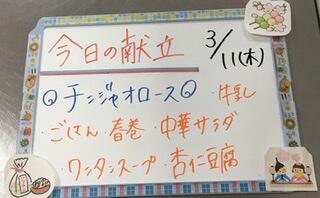 今日の献立 3/11(木)
◎チンジャオロース◎ ・牛乳
・ごはん・春巻・中華サラダ
・ワンタンスープ・杏仁豆腐